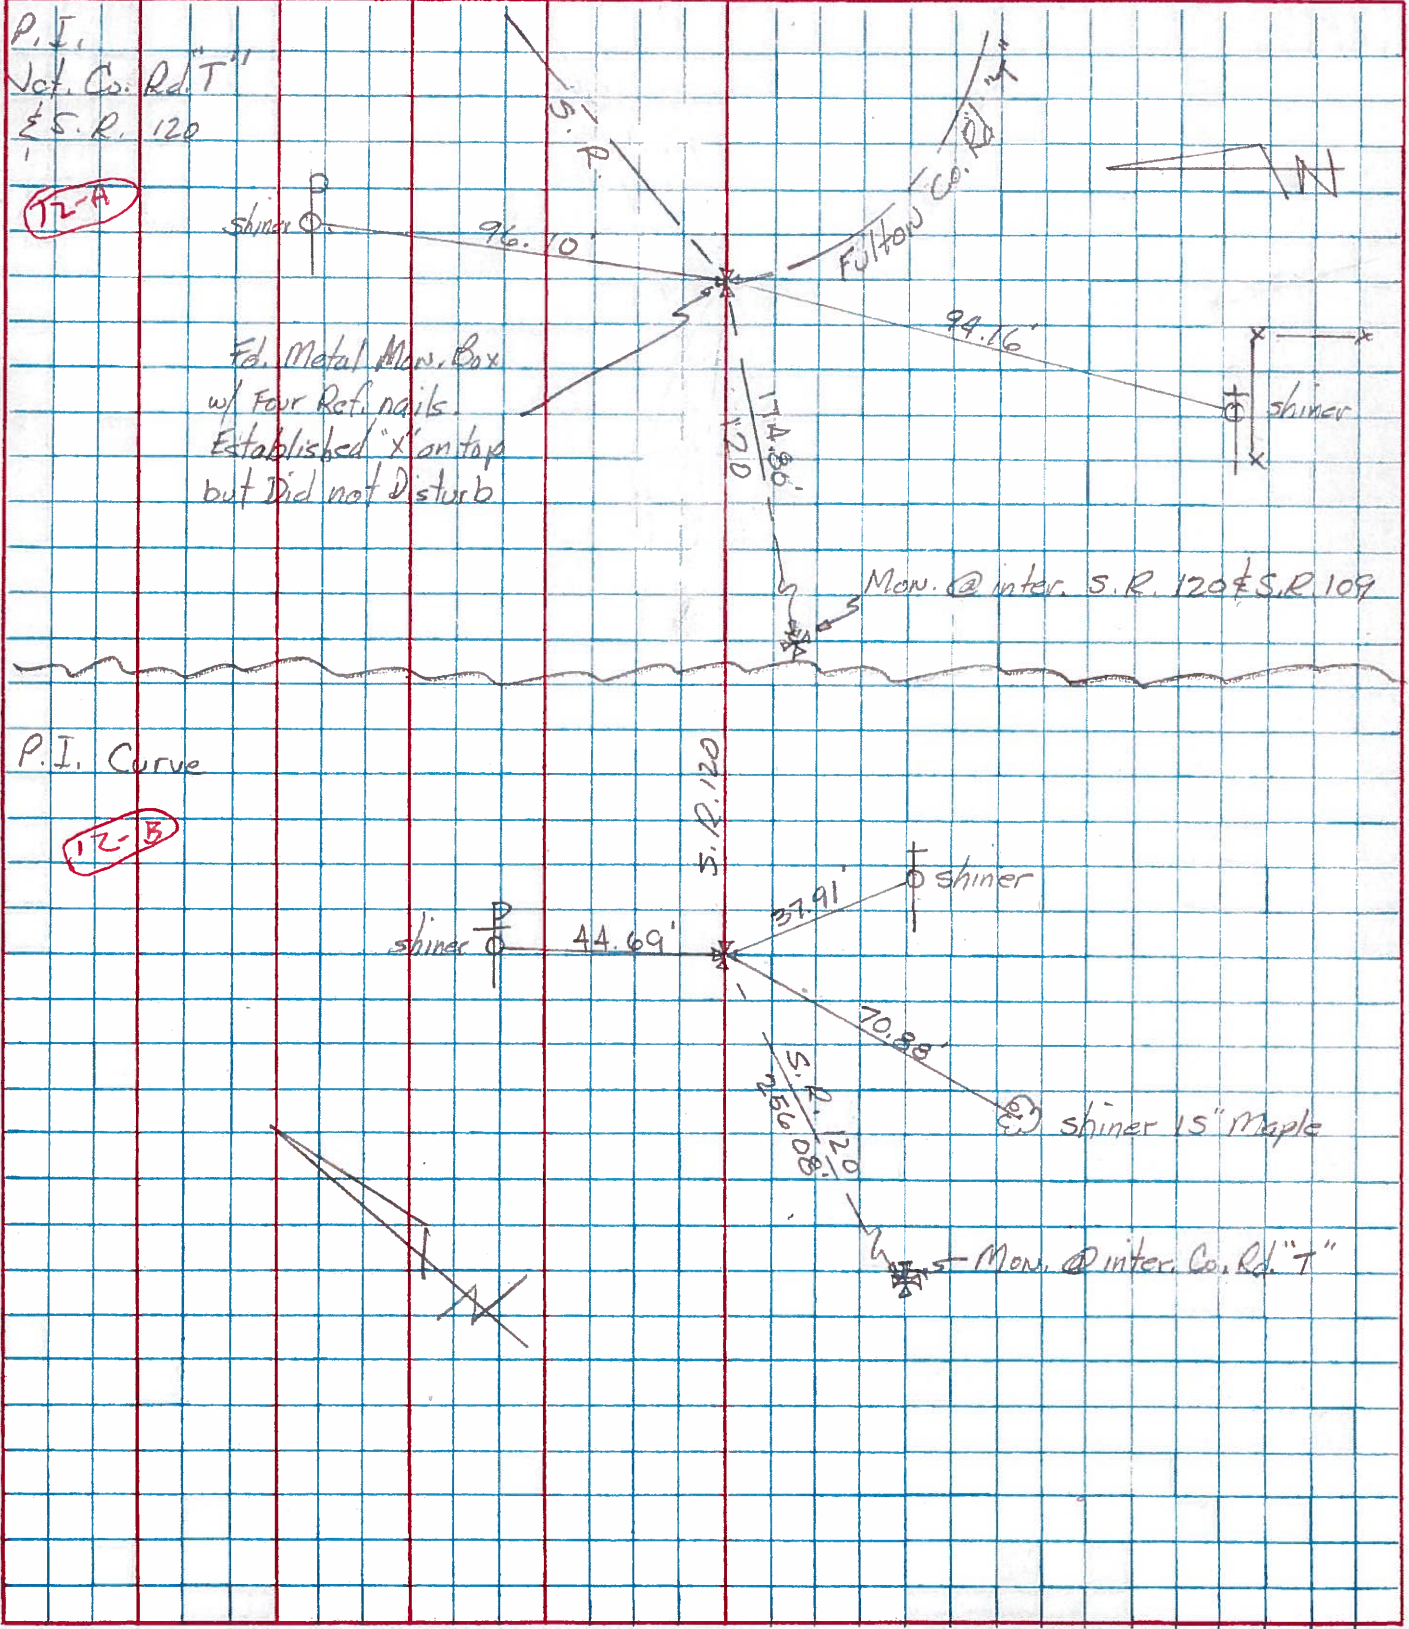 P.I.
Jct. Co. Rd. "T"
& S.R. 120
T2-A
S. R.
Fulton Co. Rd "T"
N
shiner
96.10'
94.16'
shiner
Fd. Metal Mon. Box
w/ Four Ref. nails.
Established "X" on top
but Did not Disturb
174.86'
120
Mon. @ inter. S.R. 120 & S.R. 109
P.I. Curve
T2-B
S.R. 120
shiner
44.69'
37.91'
shiner
70.88'
shiner 15" Maple
S. R. 120
256.08'
N
Mon. @ inter. Co. Rd. "T"